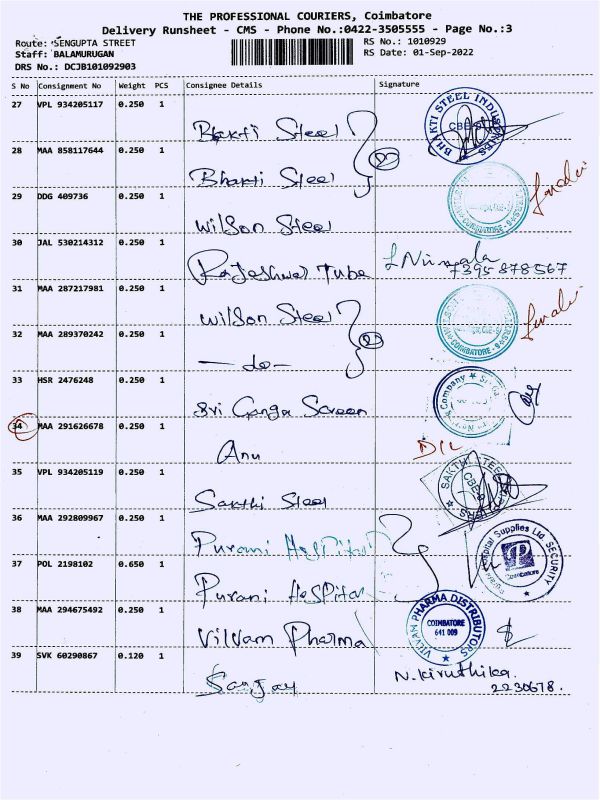 THE PROFESSIONAL COURIERS, Coimbatore
Delivery Runsheet - CMS - Phone No.:0422-3505555 - Page No.:3
Route: SENGUPTA STREET RS No.: 1010929
Staff: BALAMURUGAN RS Date: 01-Sep-2022
DRS No.: DCJB101092903
S No Consignment No Weight PCS Consignee Details Signature
27 VPL 934205117 0.250 1 Bhakti Steel BHAKTI STEEL INDUSTRIES CBE
28 MAA 858117644 0.250 1 Bhakti Steel
29 DDG 409736 0.250 1 Wilson Steel COIMBATORE
30 JAL 530214312 0.250 1 Rajeshwar Tube L Nirmala
7395878567
31 MAA 287217981 0.250 1 Wilson Steel COIMBATORE
32 MAA 289370242 0.250 1 - do -
33 HSR 2476248 0.250 1 Sri Ganga Screen Company
34 MAA 291626678 0.250 1 Anu D/L
35 VPL 934205119 0.250 1 Sakthi Steel SAKTHI STEEL CBE
36 MAA 292809967 0.250 1 Purani Hospital
37 POL 2198102 0.650 1 Purani Hospital Hospital Supplies Ltd. SECURITY Coimbatore
38 MAA 294675492 0.250 1 Vilvam Pharma VILVAM PHARMA DISTRIBUTORS COIMBATORE 641 009
39 SVK 60290867 0.120 1 Sanjay N. Kiruthika.
2230678.